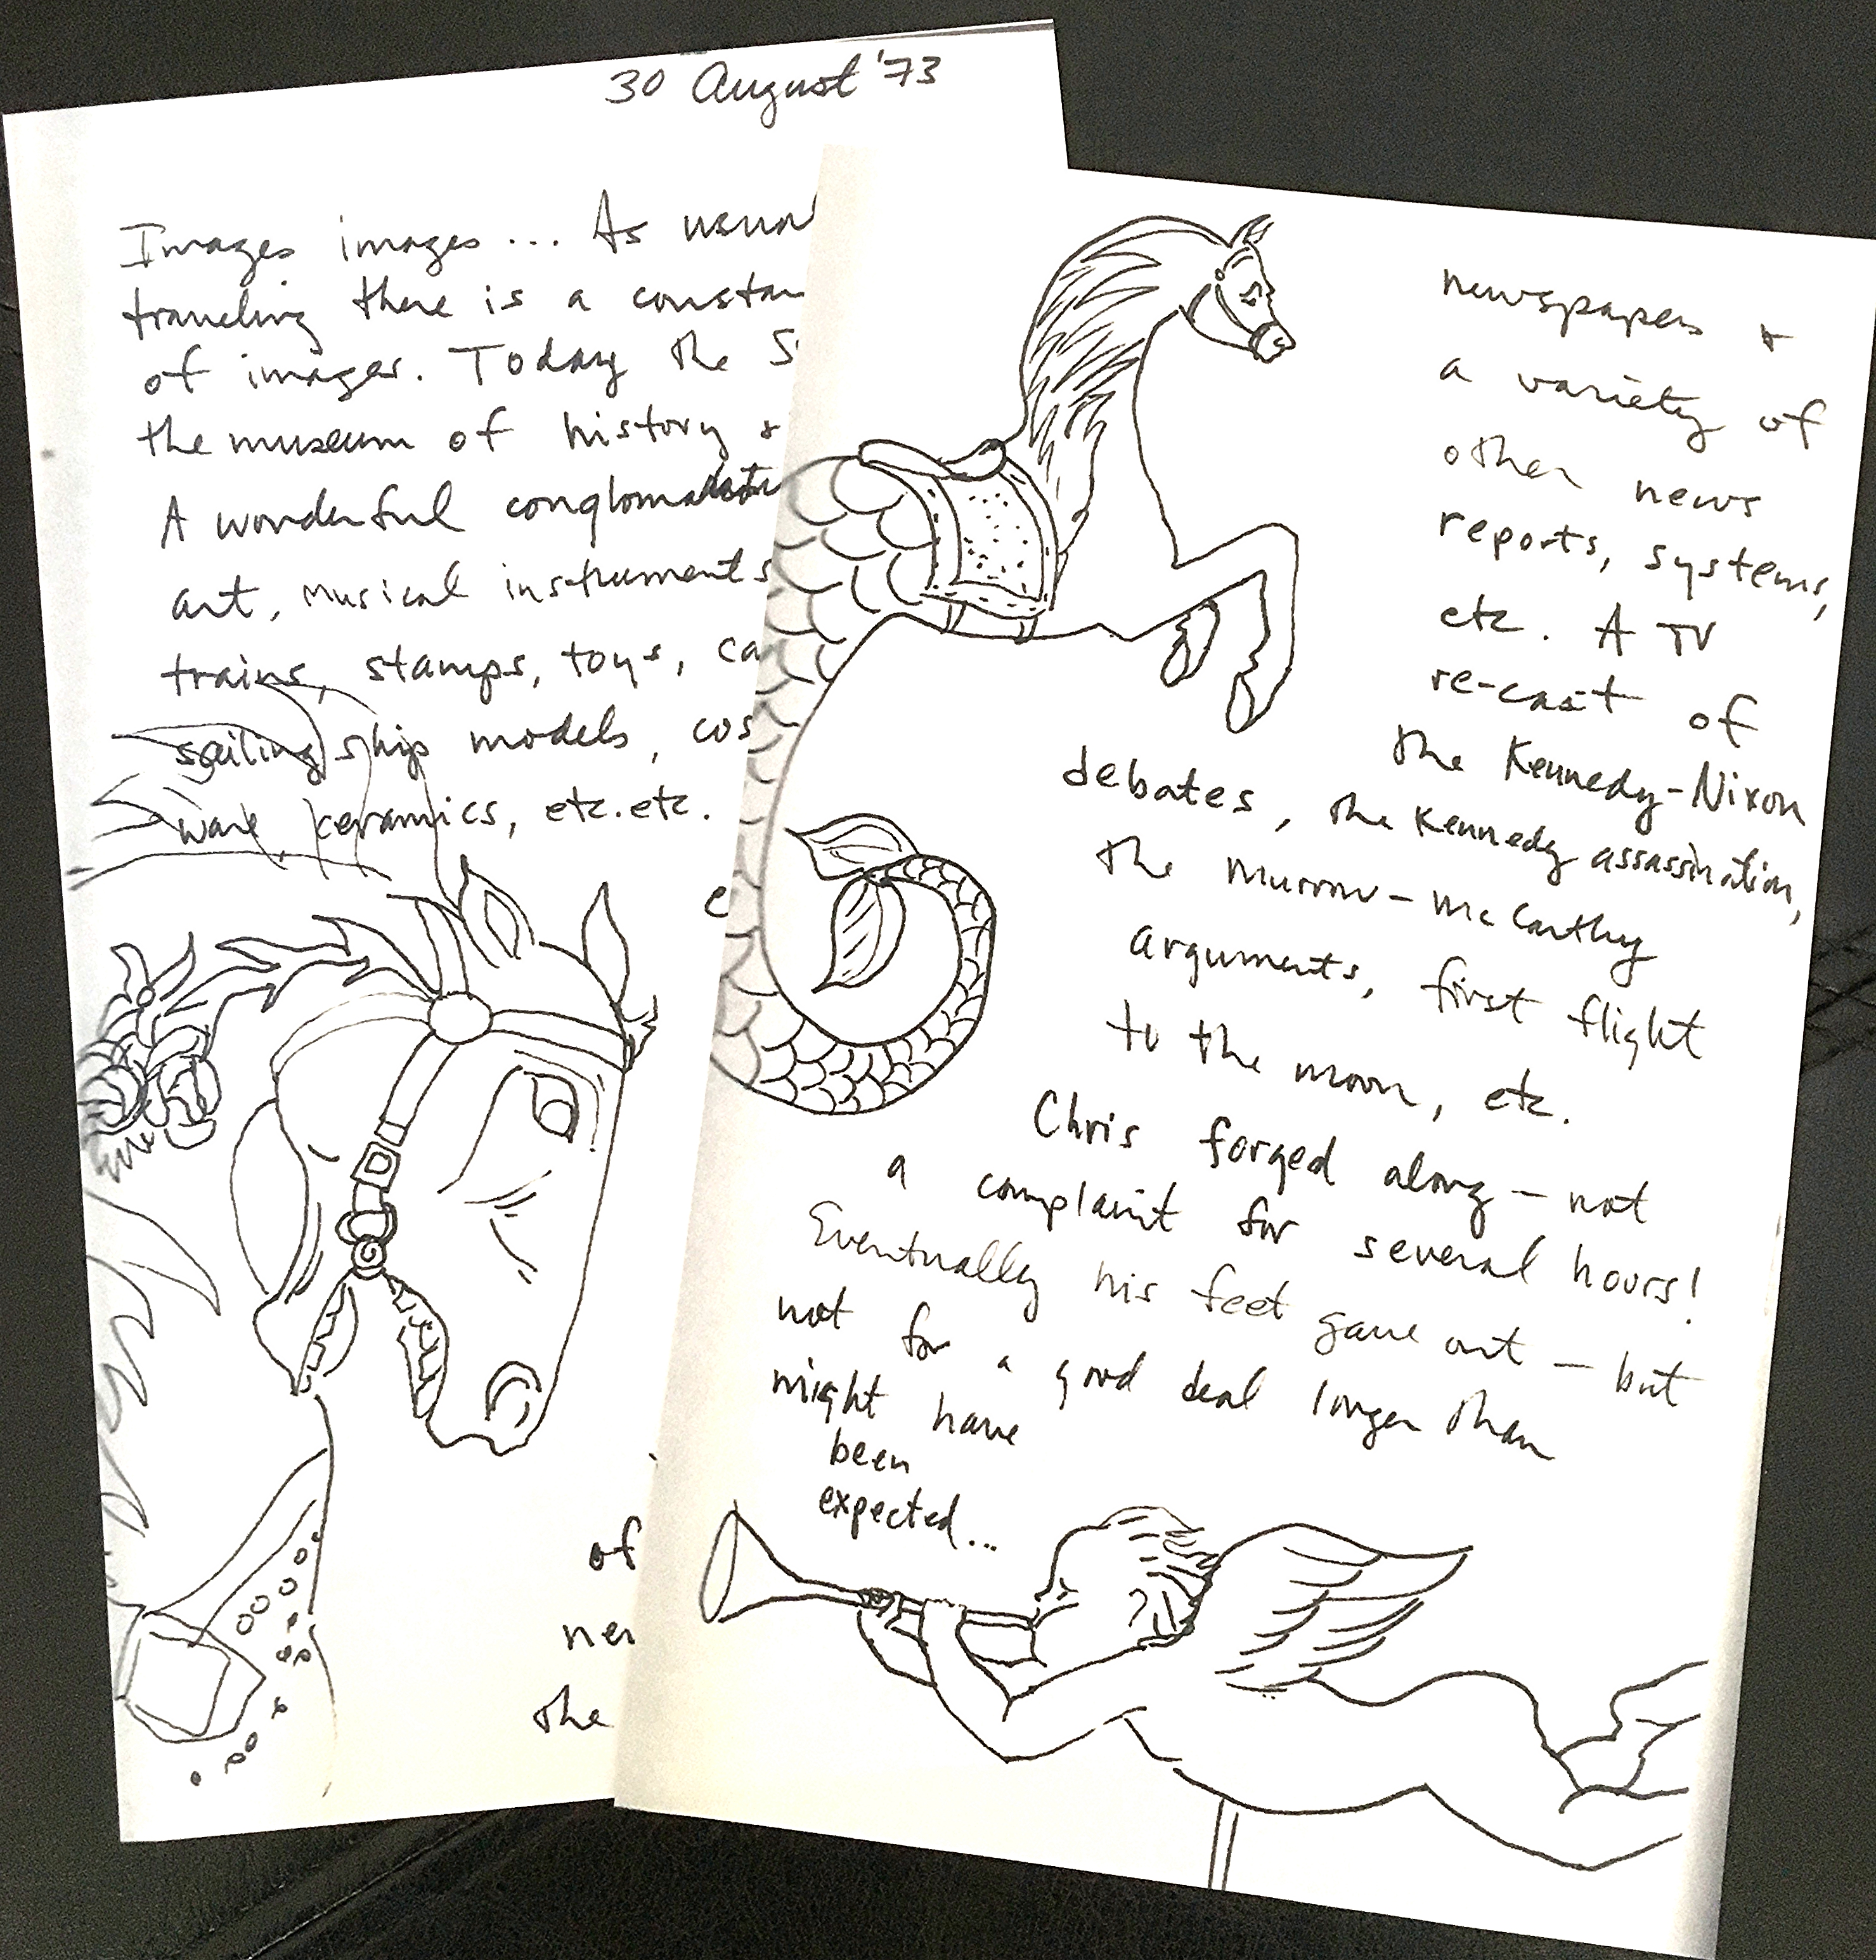 30 August '73
Images images... As usual
traveling there is a
of images. Today the
the museum of history &
A wonderful
art, musical instruments
trains, stamps, toys,
sailing ship models,
ware, ceramics, etc. etc.
of
the
newspapers &
a variety of
other news
reports, systems,
etc. A TV
re-cast of
the Kennedy-Nixon
debates, the Kennedy assassination,
the Murrow-McCarthy
arguments, first flight
to the moon, etc.
Chris forged along — not
a complaint for several hours!
Eventually his feet gave out — but
not for a good deal longer than
might have
been
expected...